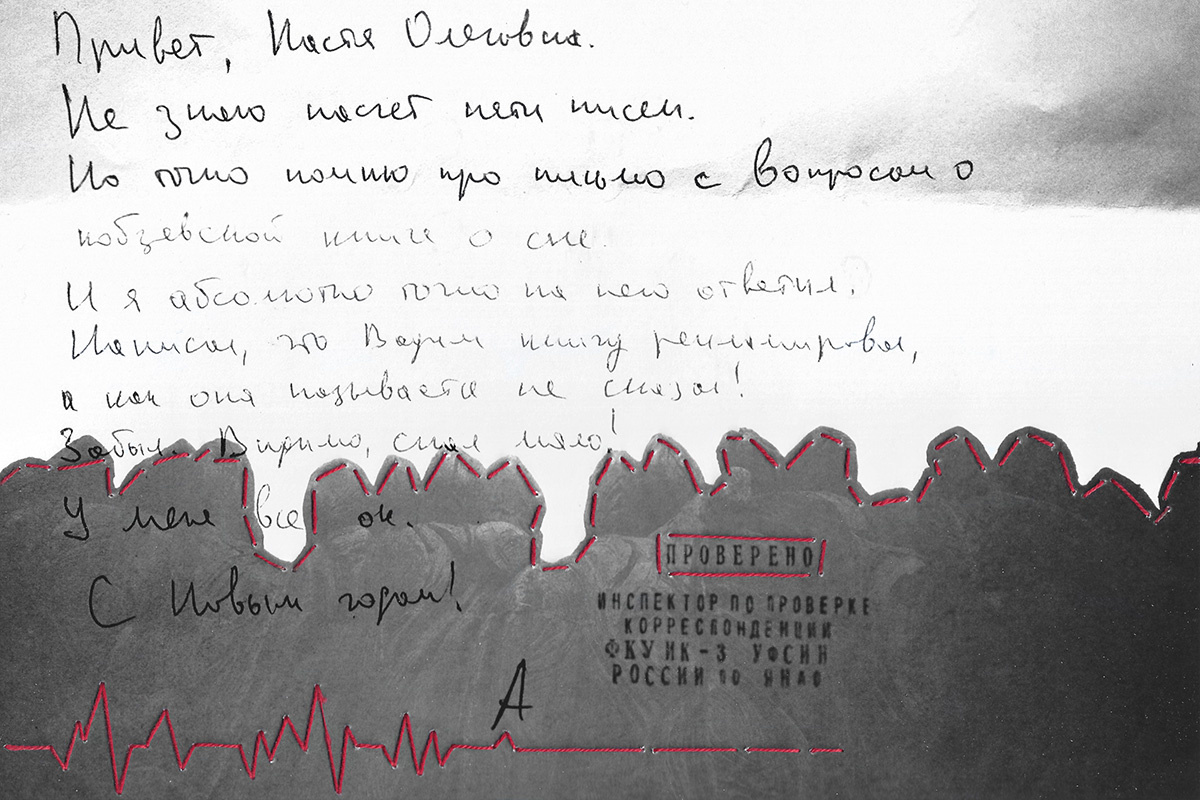 Привет, Настя Олеговна.
Не знаю насчет пяти писем.
Но точно помню про письмо с вопросом о
кобзевской книге о сне.
И я абсолютно точно на него ответил.
Написал, что Вадим книгу рекламировал,
а как она называется не сказал!
Забыл. Видимо, спал мало!
У меня все ок.
С Новым годом!
А
ПРОВЕРЕНО
ИНСПЕКТОР ПО ПРОВЕРКЕ
КОРРЕСПОНДЕНЦИИ
ФКУ ИК-3 УФСИН
РОССИИ ПО ЯНАО